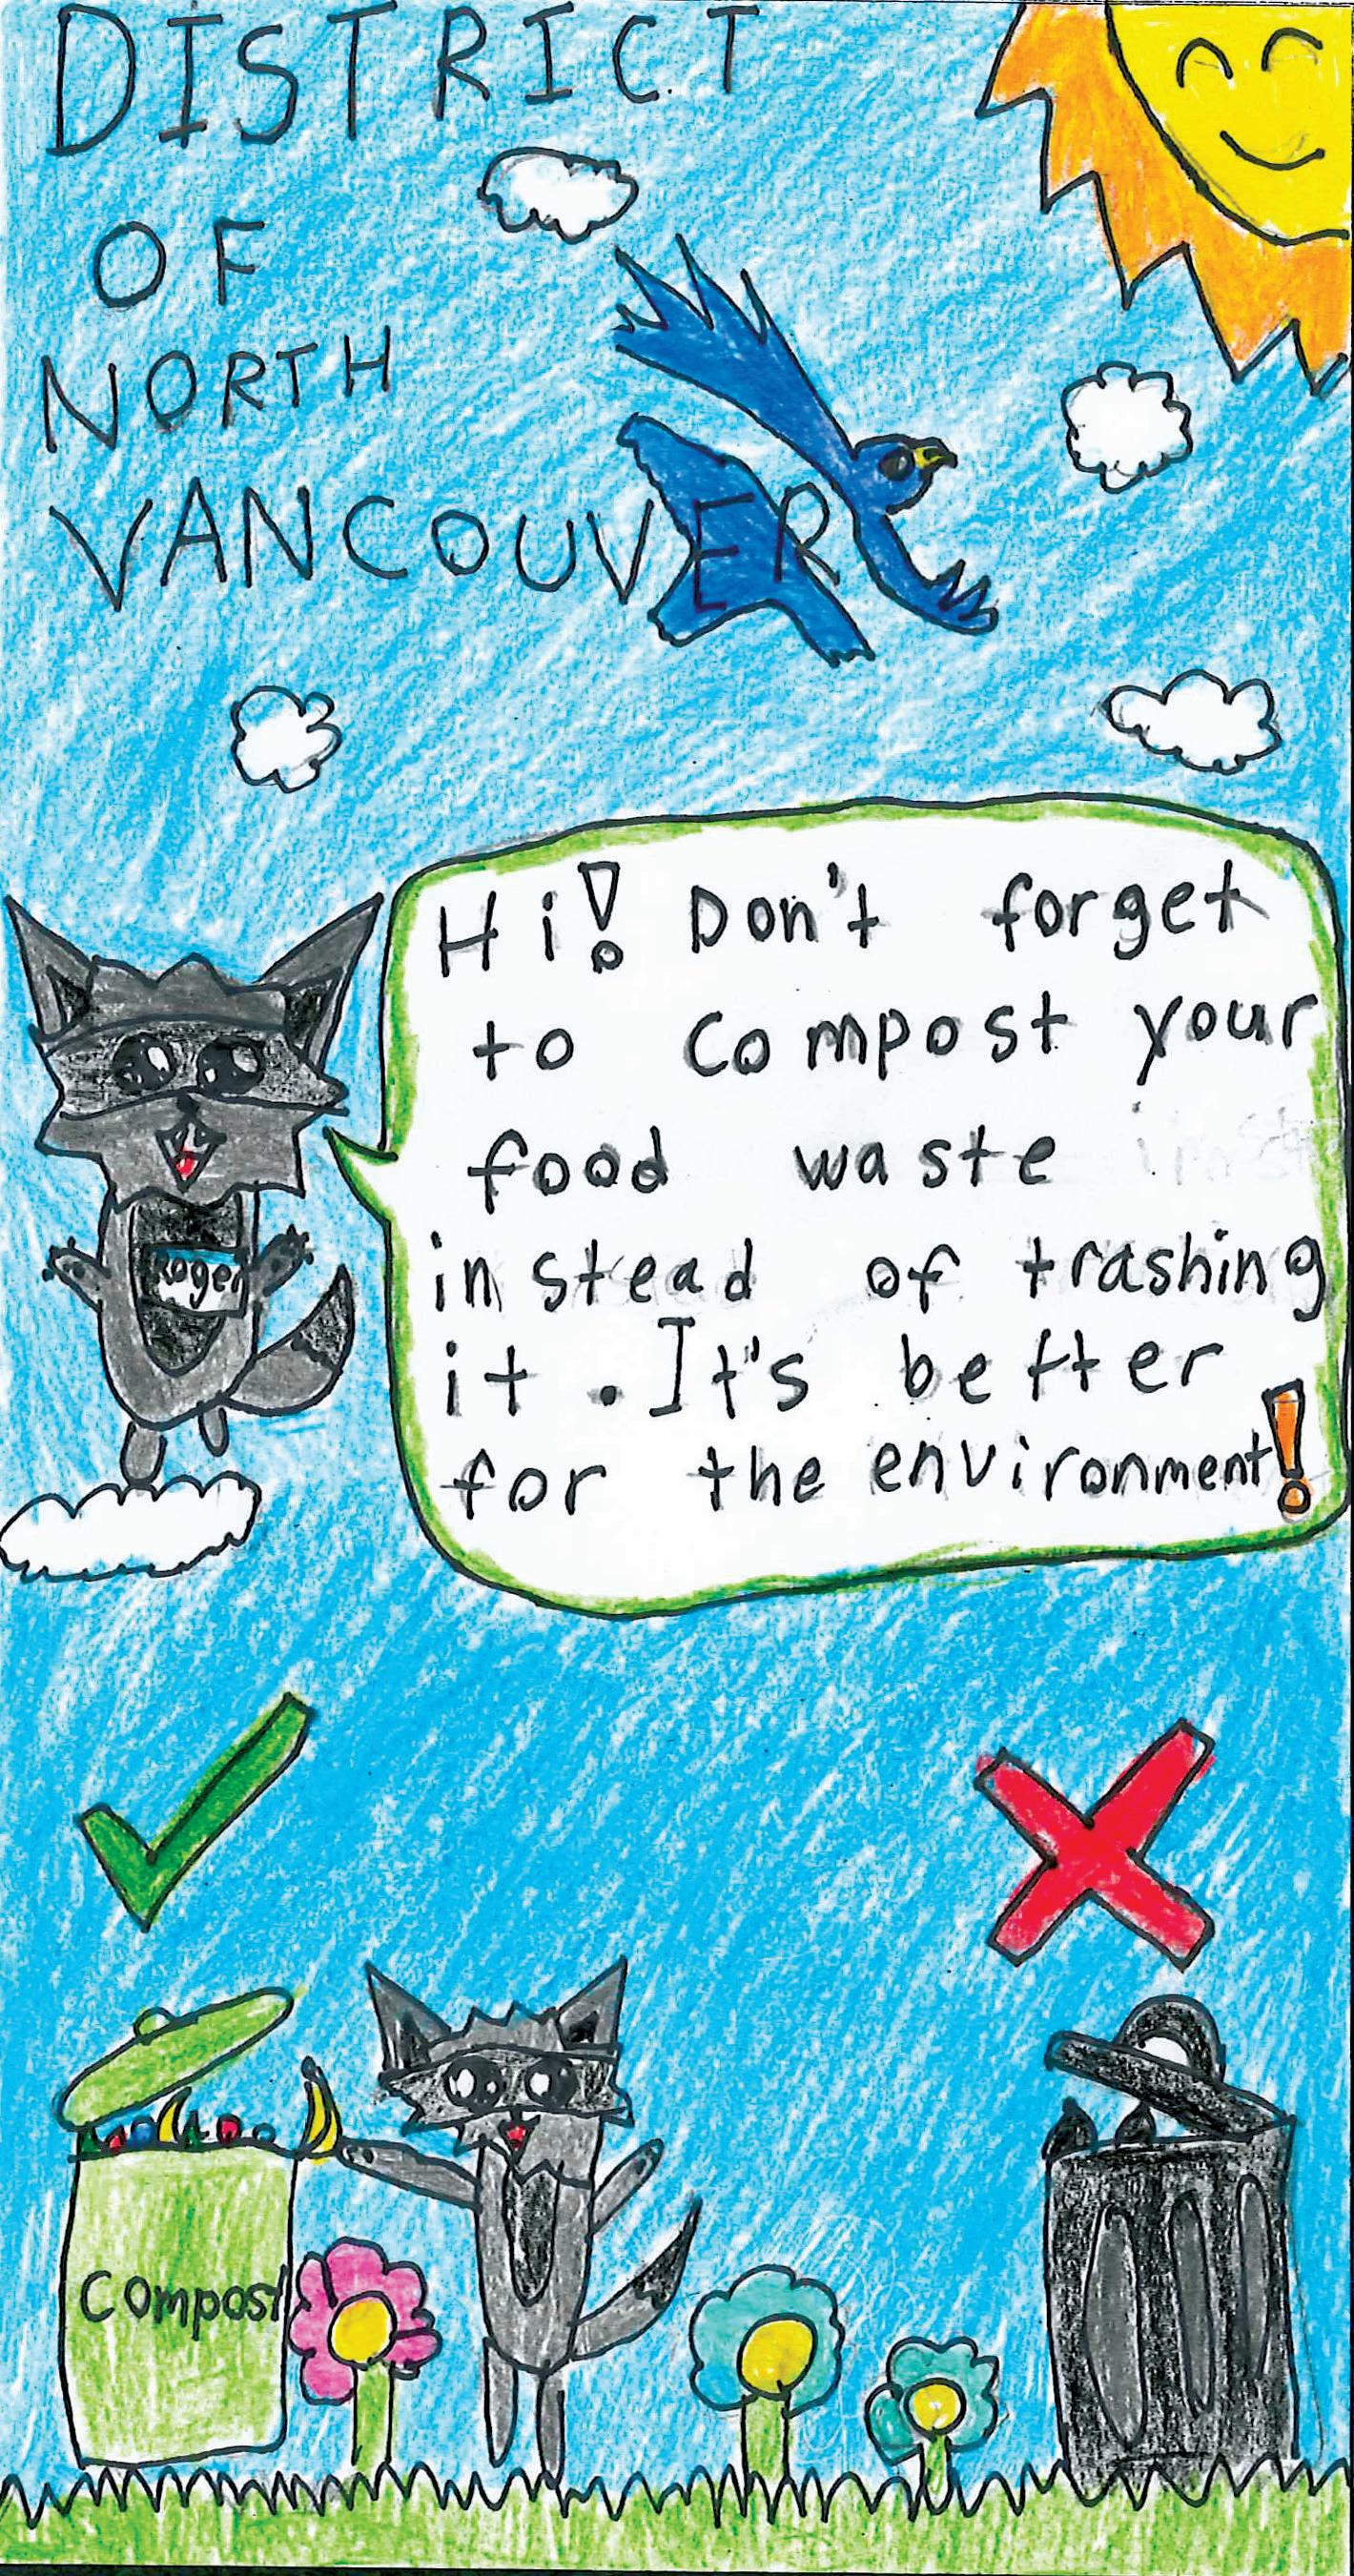 DISTRICT
OF
NORTH
VANCOUVER
Hi! Don't forget
to compost your
food waste
instead of trashing
it. It's better
for the environment!
Roger
Compost